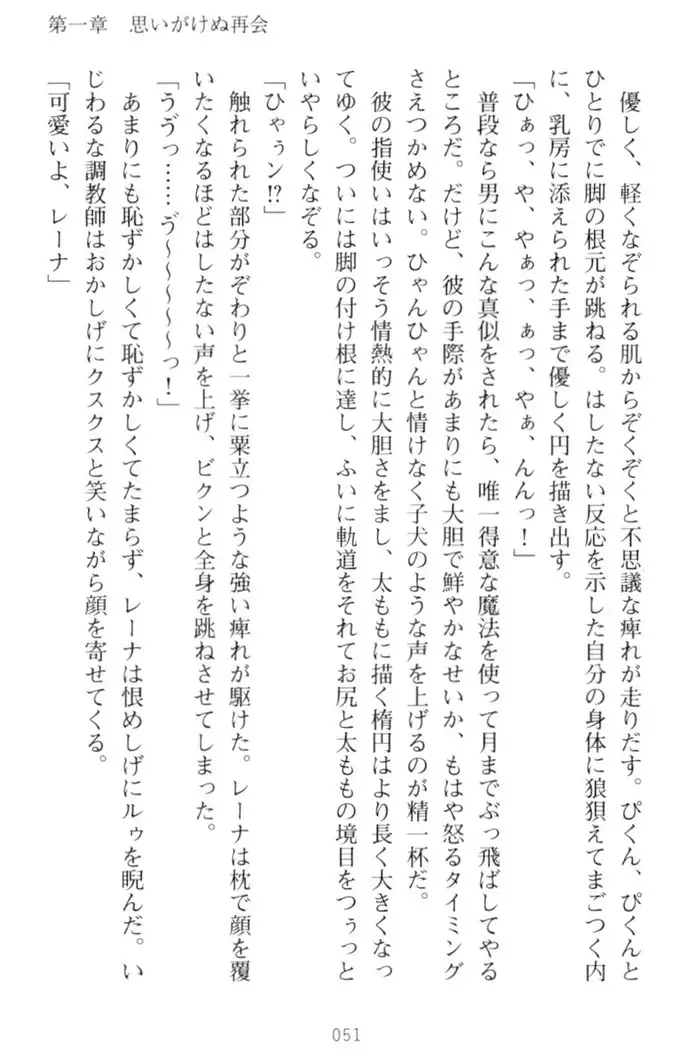 第一章　思いがけぬ再会
　優しく、軽くなぞられる肌からぞくぞくと不思議な痺れが走りだす。ぴくん、ぴくんと
ひとりでに脚の根元が跳ねる。はしたない反応を示した自分の身体に狼狽えてまごつく内
に、乳房に添えられた手まで優しく円を描き出す。
「ひぁっ、や、やぁっ、ぁっ、やぁ、んんっ！」
　普段なら男にこんな真似をされたら、唯一得意な魔法を使って月までぶっ飛ばしてやる
ところだ。だけど、彼の手際があまりにも大胆で鮮やかなせいか、もはや怒るタイミング
さえつかめない。ひゃんひゃんと情けなく子犬のような声を上げるのが精一杯だ。
　彼の指使いはいっそう情熱的に大胆さをまし、太ももに描く楕円はより長く大きくなっ
てゆく。ついには脚の付け根に達し、ふいに軌道をそれてお尻と太ももの境目をつぅっと
いやらしくなぞる。
「ひゃぅン!?」
　触れられた部分がぞわりと一挙に粟立つような強い痺れが駆けた。レーナは枕で顔を覆
いたくなるほどはしたない声を上げ、ビクンと全身を跳ねさせてしまった。
「うゔっ……ゔ～～～～～っ！」
　あまりにも恥ずかしくて恥ずかしくてたまらず、レーナは恨めしげにルゥを睨んだ。い
じわるな調教師はおかしげにクスクスと笑いながら顔を寄せてくる。
「可愛いよ、レーナ」
051